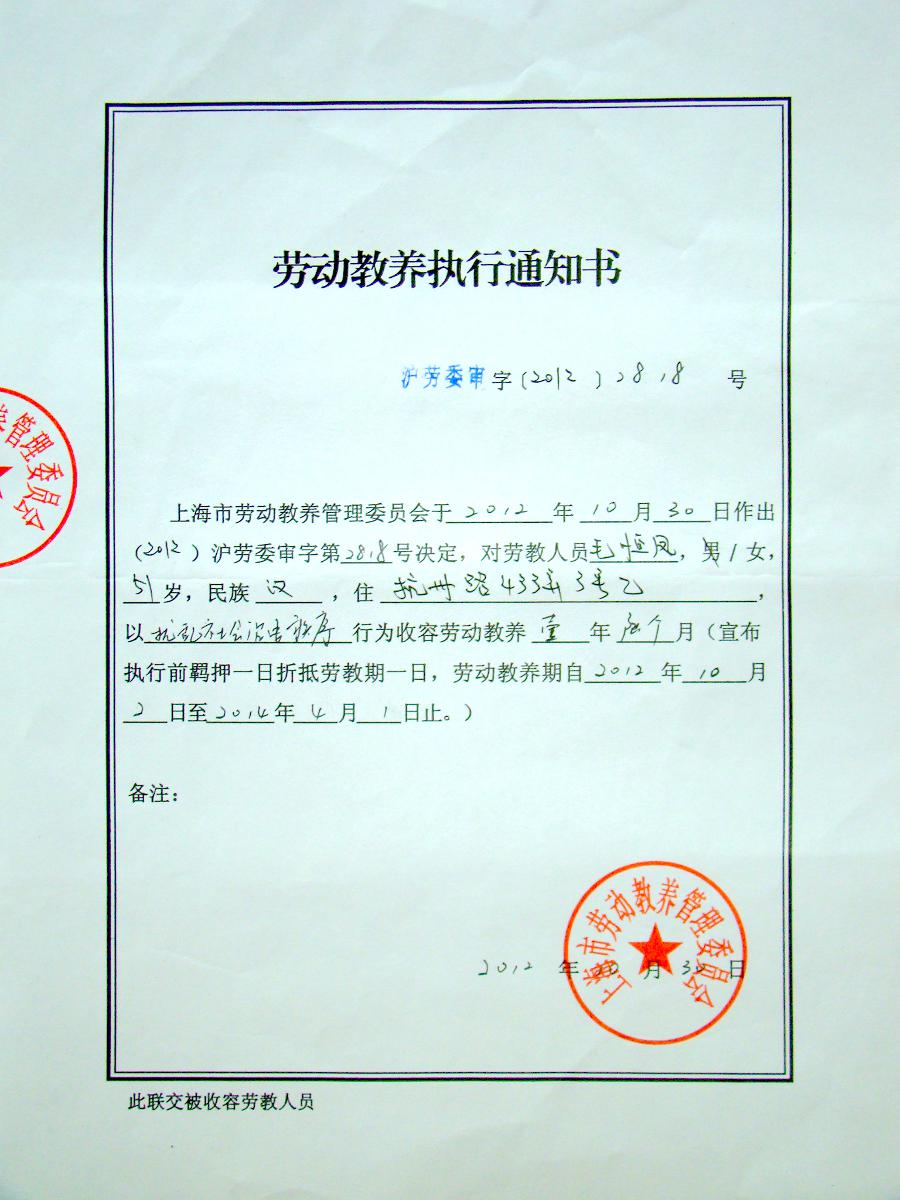 劳动教养执行通知书
沪劳委审字(2012)2818 号
上海市劳动教养管理委员会于2012年10月30日作出
(2012)沪劳委审字第2818号决定,对劳教人员毛恒凤,男/女,
51岁,民族汉,住杭州路433弄3号乙,
以扰乱社会治安秩序行为收容劳动教养壹年陆个月(宣布
执行前羁押一日折抵劳教期一日,劳动教养期自2012年10月
2日至2014年4月1日止。)
备注:
上海市劳动教养管理委员会
2012年10月30日
此联交被收容劳教人员
养管理委员会